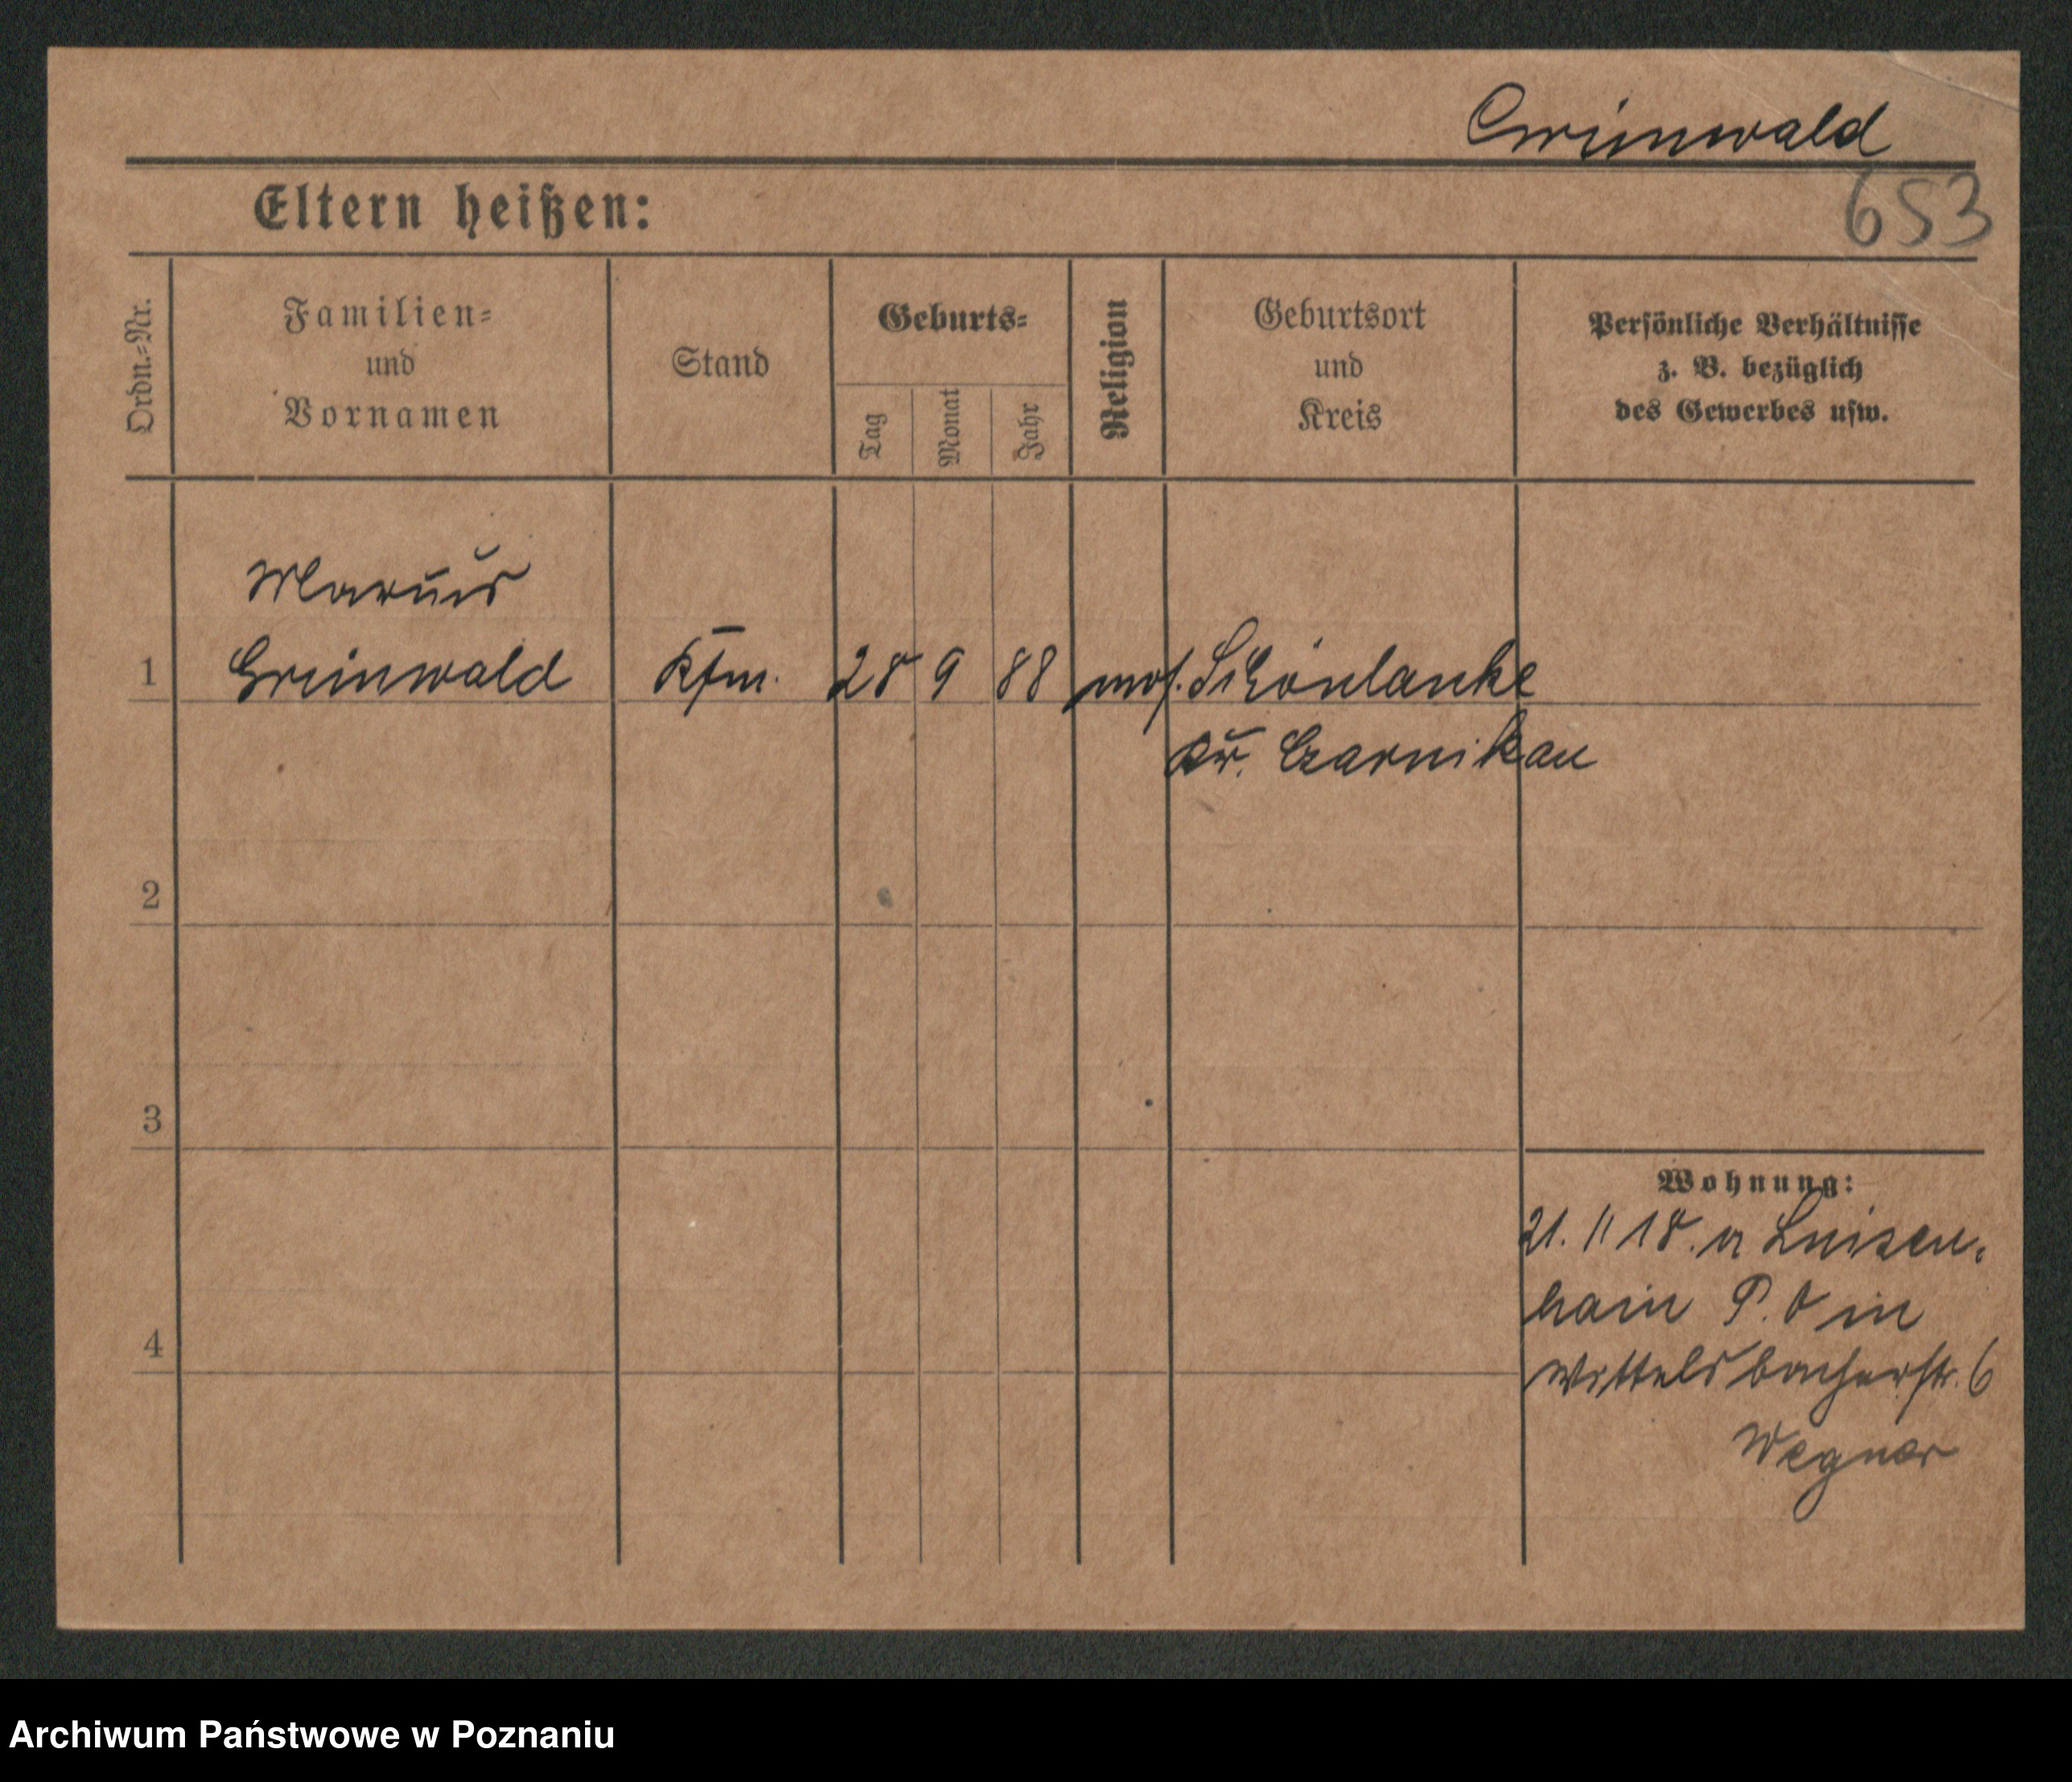 Grünwald
653
Eltern heißen:
Ordn.-Nr.
Familien-
und
Vornamen
Stand
Geburts-
Tag
Monat
Jahr
Religion
Geburtsort
und
Kreis
Persönliche Verhältnisse
z. B. bezüglich
des Gewerbes usw.
1
Grünwald
Kfm.
28 9 88 mos. Schönlanke
Kr. Czarnikau
2
3
4
Wohnung:
21. 11 18. Luisen-
hain P. O in
Wittelsbacherstr. 6
Wegner
Archiwum Państwowe w Poznaniu